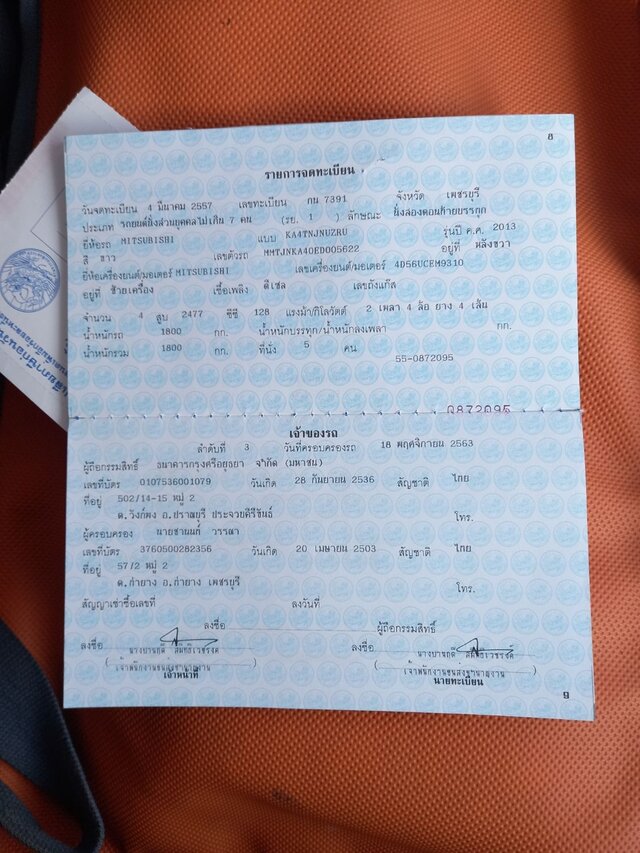 8
รายการจดทะเบียน
วันจดทะเบียน 4 มีนาคม 2557 เลขทะเบียน กน 7391 จังหวัด เพชรบุรี
ประเภท รถยนต์นั่งส่วนบุคคลไม่เกิน 7 คน (รย. 1 ) ลักษณะ นั่งสองตอนท้ายบรรทุก
ยี่ห้อรถ MITSUBISHI แบบ KA4TNJNUZRU รุ่นปี ค.ศ. 2013
สี ขาว เลขตัวรถ MMTJNKA40ED005622 อยู่ที่ หลังขวา
ยี่ห้อเครื่องยนต์/มอเตอร์ MITSUBISHI เลขเครื่องยนต์/มอเตอร์ 4D56UCEM9310
อยู่ที่ ซ้ายเครื่อง เชื้อเพลิง ดีเซล เลขถังแก๊ส
จำนวน 4 สูบ 2477 ซีซี 128 แรงม้า/กิโลวัตต์ 2 เพลา 4 ล้อ ยาง 4 เส้น
น้ำหนักรถ 1800 กก. น้ำหนักบรรทุก/น้ำหนักลงเพลา กก.
น้ำหนักรวม 1800 กก. ที่นั่ง 5 คน
55-0872095
0872095
เจ้าของรถ
ลำดับที่ 3 วันที่ครอบครองรถ 18 พฤศจิกายน 2563
ผู้ถือกรรมสิทธิ์ ธนาคารกรุงศรีอยุธยา จำกัด (มหาชน)
เลขที่บัตร 0107536001079 วันเกิด 28 กันยายน 2536 สัญชาติ ไทย
ที่อยู่ 502/14-15 หมู่ 2
ต.วังก์พง อ.ปราณบุรี ประจวบคีรีขันธ์ โทร.
ผู้ครอบครอง นายชานนท์ วรรณา
เลขที่บัตร 3760500282356 วันเกิด 20 เมษายน 2503 สัญชาติ ไทย
ที่อยู่ 57/2 หมู่ 2
ต.ท่ายาง อ.ท่ายาง เพชรบุรี โทร.
สัญญาเช่าซื้อเลขที่ ลงวันที่
ลงชื่อ ผู้ถือกรรมสิทธิ์
ลงชื่อ ลงชื่อ
(เจ้าพนักงานขนส่งชำนาญงาน) (เจ้าพนักงานขนส่งชำนาญงาน)
เจ้าหน้าที่ นายทะเบียน
9